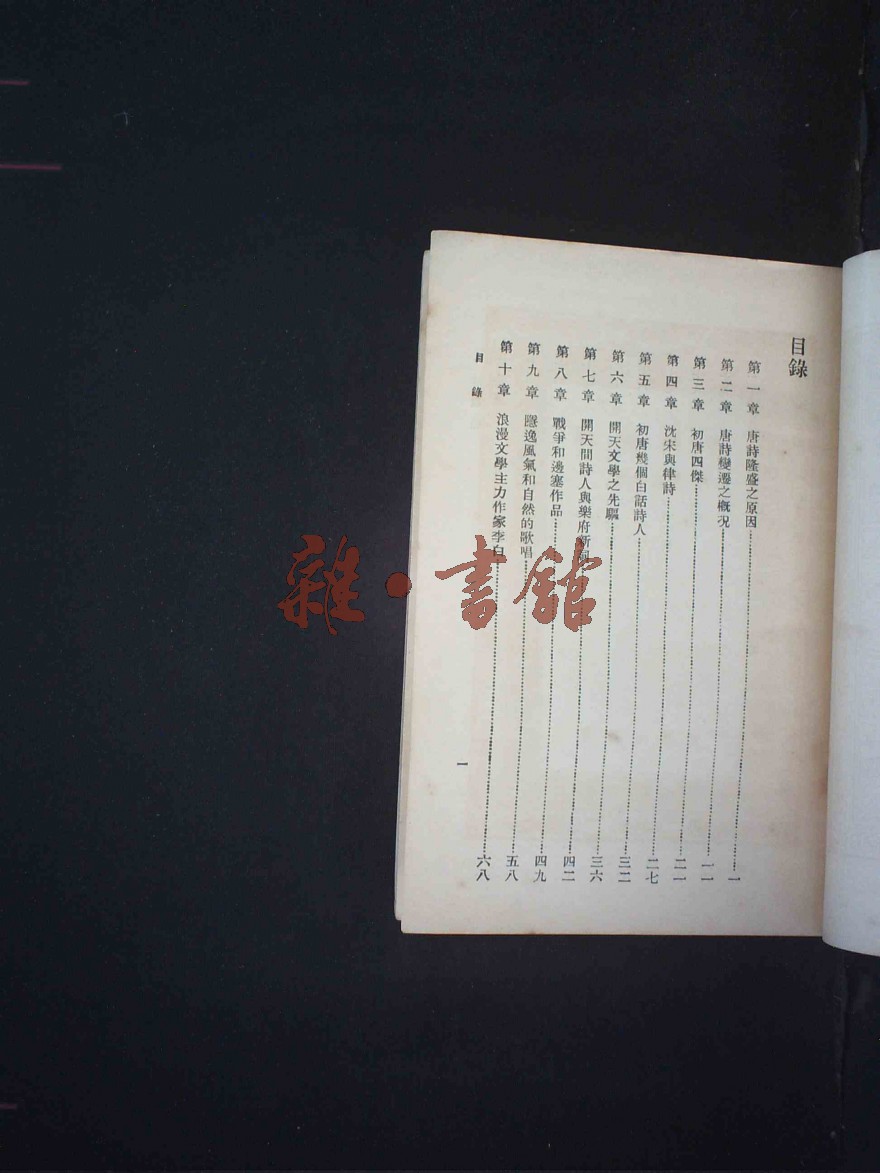 目錄
第一章 唐詩隆盛之原因……一
第二章 唐詩變遷之概況……一一
第三章 初唐四傑……二一
第四章 沈宋與律詩……二七
第五章 初唐幾個白話詩人……三二
第六章 開天文學之先驅……三六
第七章 開天間詩人與樂府新詞……四二
第八章 戰爭和邊塞作品……四九
第九章 隱逸風氣和自然的歌唱……五八
第十章 浪漫文學主力作家李白……六八
目錄
一
雜·書館